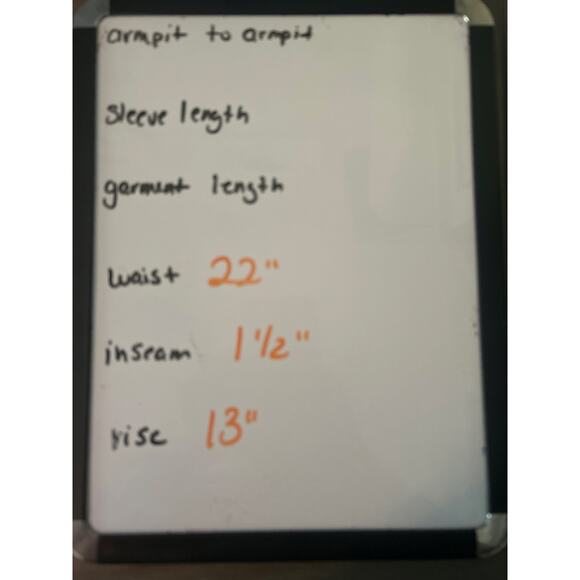 armpit to armpit
Sleeve length
garment length
waist 22"
inseam 1 1/2"
rise 13"